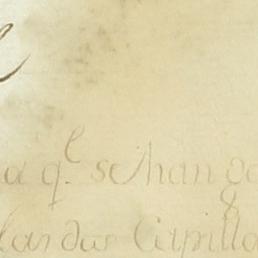 a q.^l se han ge
las dos Capilla